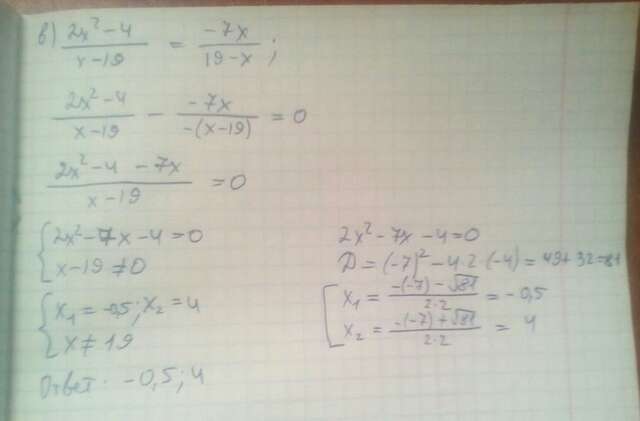 в) (2x² - 4)/(x - 19) = (-7x)/(19 - x);
(2x² - 4)/(x - 19) - (-7x)/(-(x - 19)) = 0
(2x² - 4 - 7x)/(x - 19) = 0
{ 2x² - 7x - 4 = 0
x - 19 ≠ 0
{ x₁ = -0,5; x₂ = 4
x ≠ 19
Ответ: -0,5; 4
2x² - 7x - 4 = 0
D = (-7)² - 4·2·(-4) = 49 + 32 = 81
[ x₁ = (-(-7) - √81)/(2·2) = -0,5
x₂ = (-(-7) + √81)/(2·2) = 4